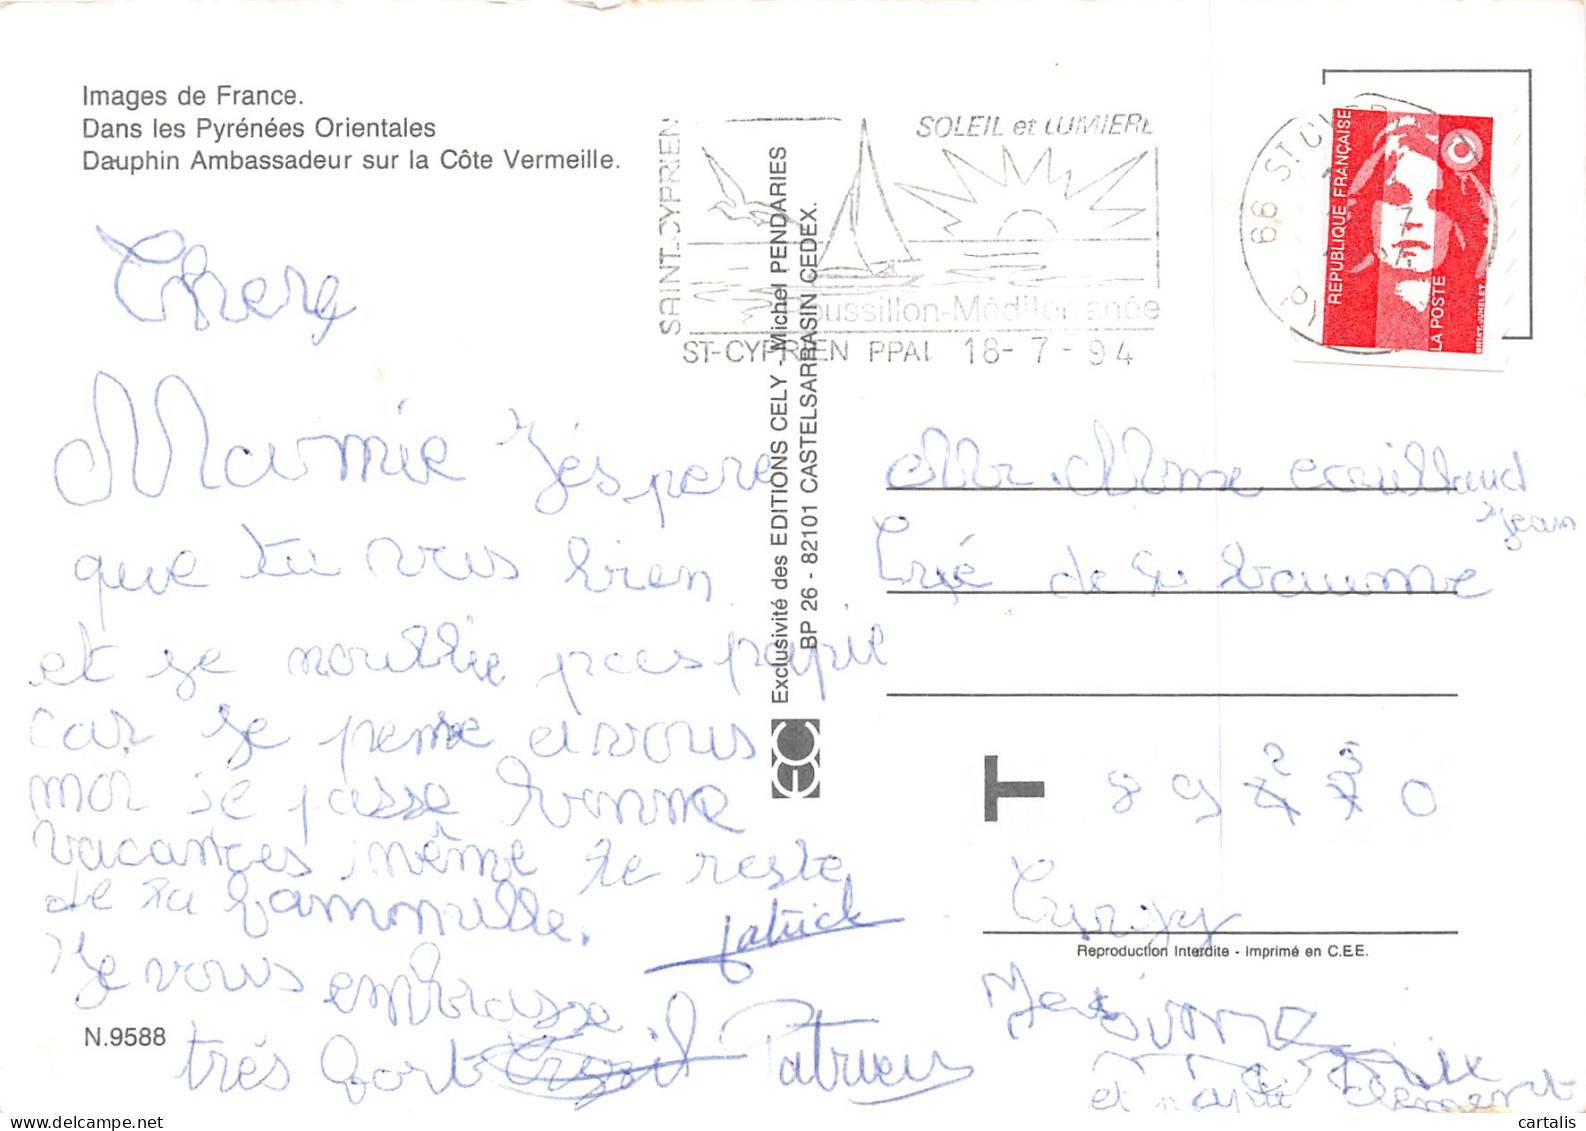 Images de France.
Dans les Pyrénées Orientales
Dauphin Ambassadeur sur la Côte Vermeille.
SAINT-CYPRIEN
SOLEIL et LUMIERE
Roussillon-Méditerranée
ST-CYPRIEN PPAL 18-7-94
66 ST CYPR
REPUBLIQUE FRANÇAISE
LA POSTE
BRIAT-JUMELET
Exclusivité des EDITIONS CELY - Michel PENDARIES
BP 26 - 82101 CASTELSARRASIN CEDEX.
Chere
Mamie J'éspere
que tu vas bien
et je noublie pas papie
car je pense a vous
moi je passe bonne
vacances même le reste
de la fammille.
Je vous embrasse
trés fort
Patrick
Mr. Mme
Jean
de la baume
89
0
T
EC
Reproduction Interdite - Imprimé en C.E.E.
N.9588
et clement
cartalis.com